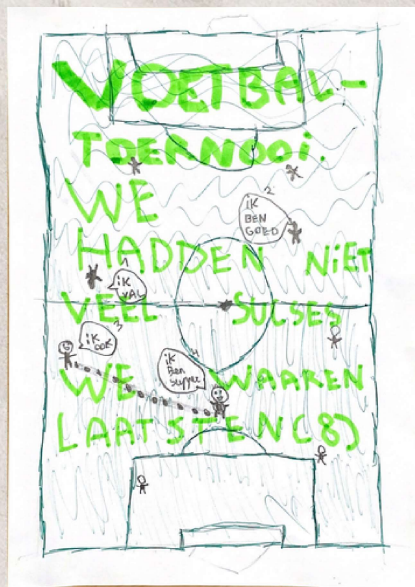 VOETBAL-
TOERNOOI.
WE
HADDEN NIET
VEEL SUCSES
WE WAAREN
LAATSTEN (8)
2
iK
BEN
GOED
1
iK
VAL
3
iK
OOK
4
iK
Ben
supper